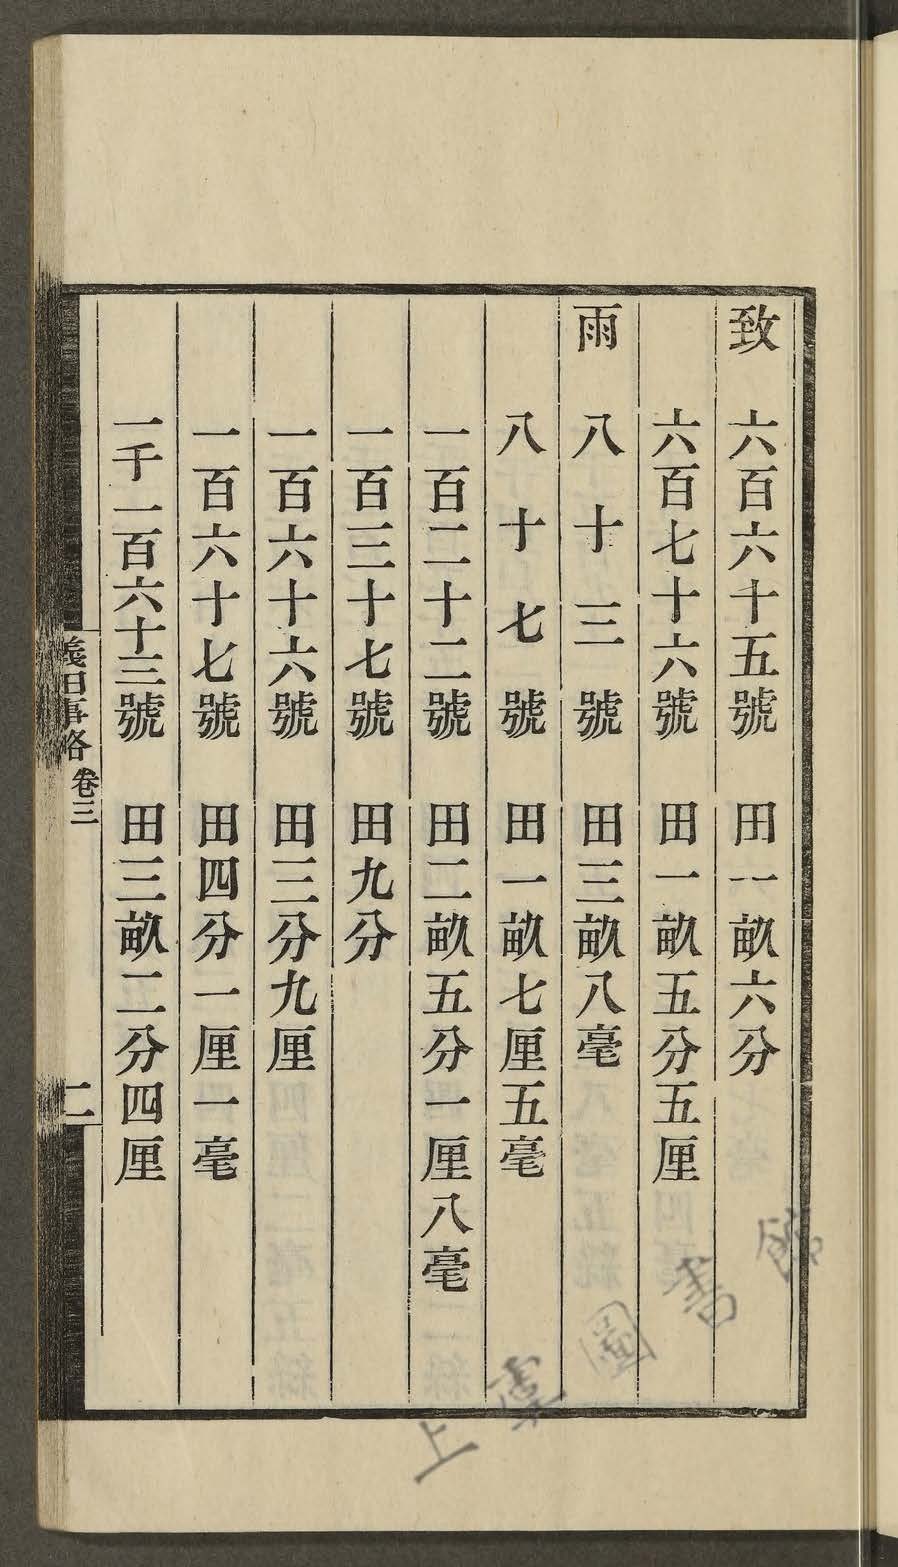 致　六百六十五號　田一畝六分
六百七十六號　田一畝五分五厘
雨　八十三號　田三畝八毫
八十七號　田一畝七厘五毫
一百二十二號　田二畝五分一厘八毫
一百三十七號　田九分
一百六十六號　田三分九厘
一百六十七號　田四分一厘一毫
一千一百六十三號　田三畝二分四厘
義田事略　卷三　二
上虞圖書館